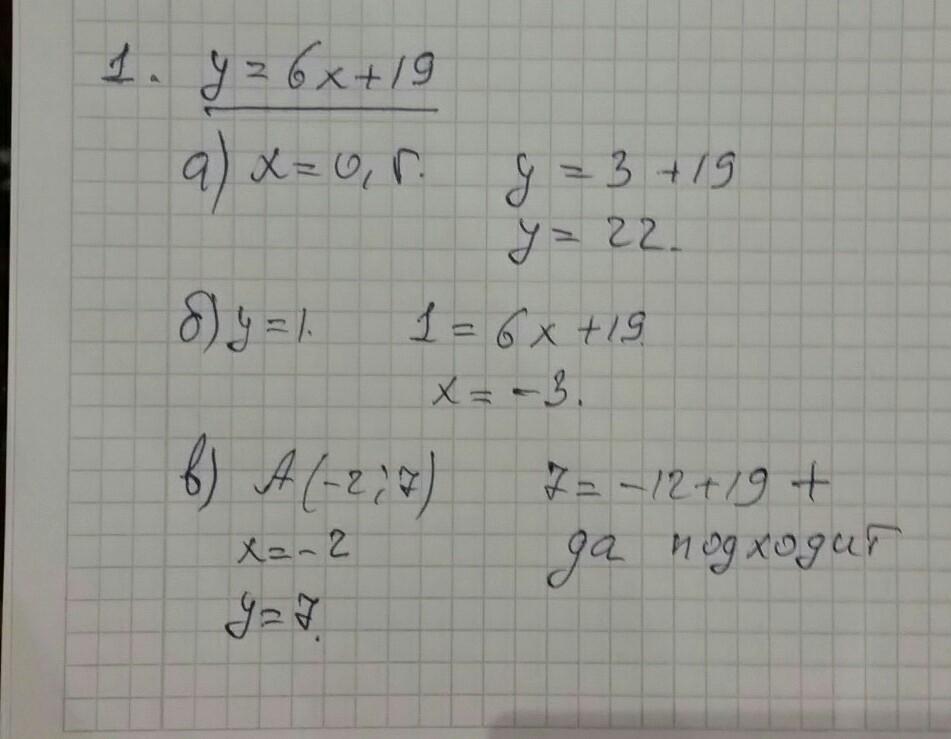 1. y = 6x+19
а) x = 0,5. y = 3 +19
y = 22.
б) y = 1. 1 = 6x +19.
x = -3.
в) A (-2; 7) 7 = -12+19 +
x = -2 да подходит
y = 7.